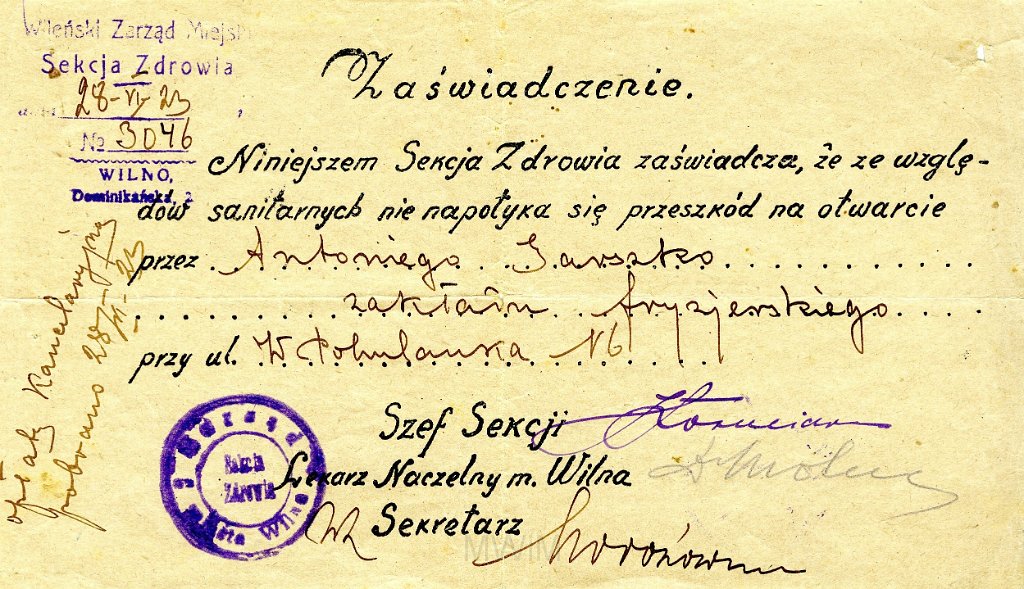 Wileński Zarząd Miejski
Sekcja Zdrowia
28-VI-23
№ 3046
WILNO,
Dominikańska, 2
Zaświadczenie.
Niniejszem Sekcja Zdrowia zaświadcza, że ze wzglę-
dów sanitarnych nie napotyka się przeszkód na otwarcie
przez Antoniego Jarszko
zakładu fryzjerskiego
przy ul. W Pohulanka N6
opłatę Kancelaryjną
pobrano 28/VI-23
Szef Sekcji
Lekarz Naczelny m. Wilna
Sekretarz
Zarząd
Sekcja
Zdrowia
m-sta Wilna
MWIM